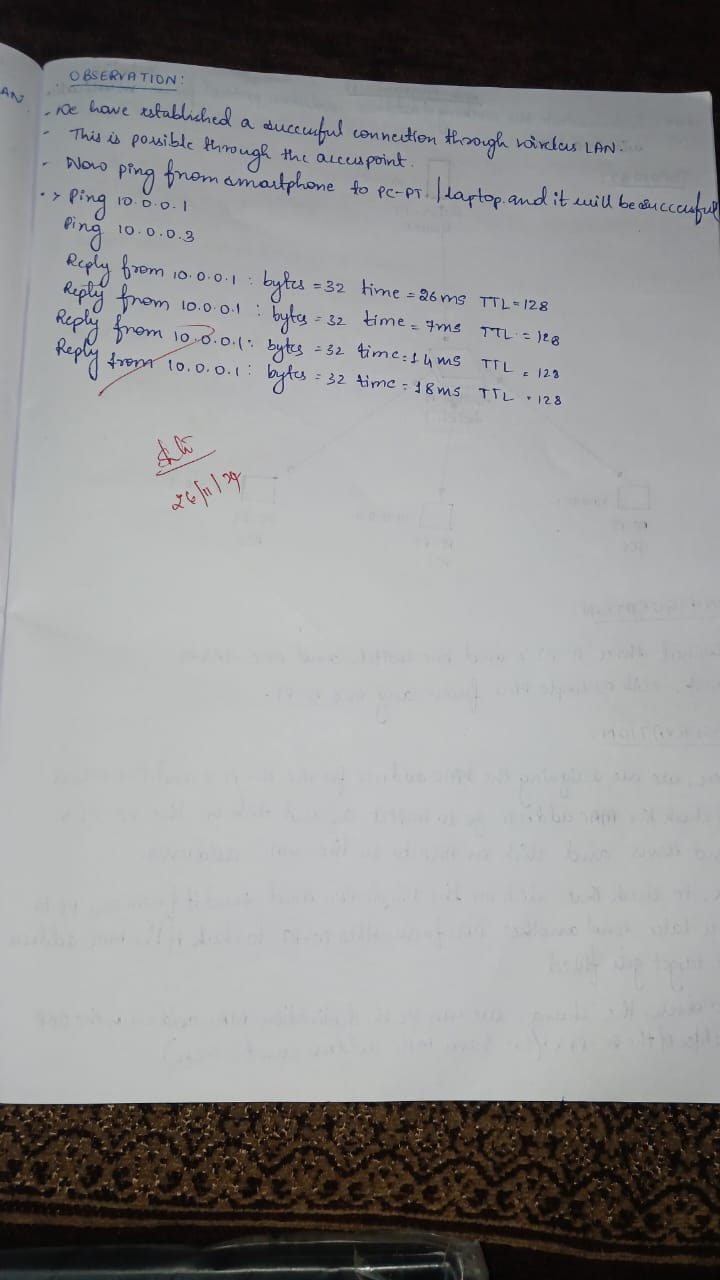 AN.
OBSERVATION:
- We have established a successful connection through wireless LAN.
- This is possible through the accesspoint.
- Now ping from smartphone to PC-PT / laptop. and it will be successful
-> Ping 10.0.0.1
Ping 10.0.0.3
Reply from 10.0.0.1 : bytes = 32 time = 26ms TTL = 128
Reply from 10.0.0.1 : bytes = 32 time = 7ms TTL = 128
Reply from 10.0.0.1 : bytes = 32 time = 14ms TTL = 128
Reply from 10.0.0.1 : bytes = 32 time = 18ms TTL = 128
26/11/24